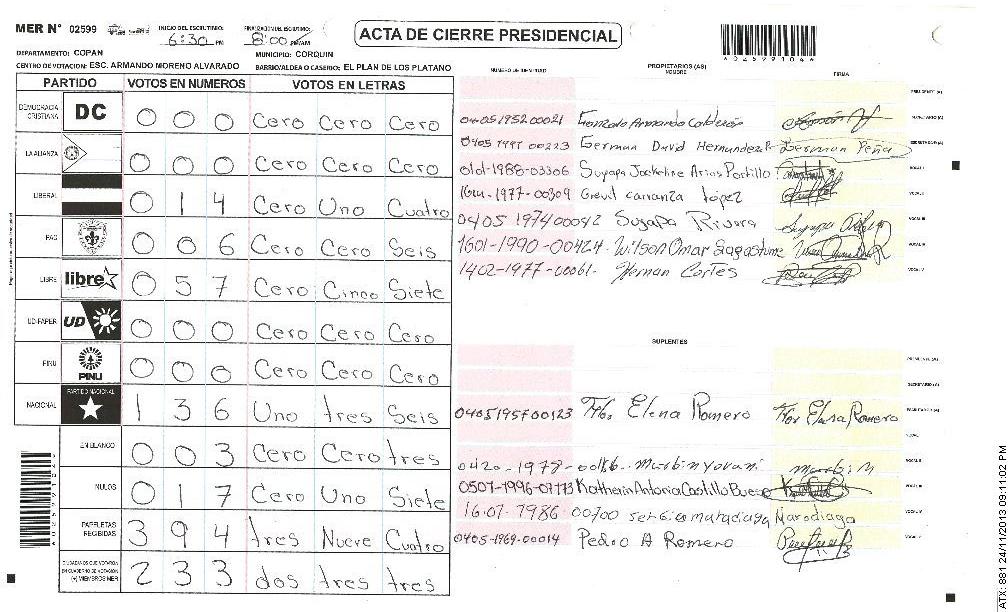 MER N° 02599
INICIO DEL ESCRUTINIO: 6:30 PM
FINALIZACION DEL ESCRUTINIO: 8:00 PM/AM
ACTA DE CIERRE PRESIDENCIAL
DEPARTAMENTO: COPAN
MUNICIPIO: CORQUIN
CENTRO DE VOTACION: ESC. ARMANDO MORENO ALVARADO
BARRIO/ALDEA O CASERIO: EL PLAN DE LOS PLATANO
PARTIDO VOTOS EN NUMEROS VOTOS EN LETRAS
DEMOCRACIA CRISTIANA DC 0 0 0 Cero Cero Cero
LA ALIANZA 0 0 0 Cero Cero Cero
LIBERAL 0 1 4 Cero Uno Cuatro
PAC 0 0 6 Cero Cero Seis
LIBRE libre 0 5 7 Cero Cinco Siete
UD-FAPER UD 0 0 0 Cero Cero Cero
PINU PINU 0 0 0 Cero Cero Cero
NACIONAL PARTIDO NACIONAL 1 3 6 Uno tres Seis
EN BLANCO 0 0 3 Cero Cero tres
NULOS 0 1 7 Cero Uno Siete
PAPELETAS RECIBIDAS 3 9 4 tres Nueve Cuatro
CIUDADANOS QUE VOTARON EN CUADERNO DE VOTACION (+) MIEMBROS MER 2 3 3 dos tres tres
NUMERO DE IDENTIDAD
PROPIETARIOS (AS)
NOMBRE
FIRMA
PRESIDENTE (A)
0405195200021 Gonzalo Armando Calderón
0405 1997 00223 German David Hernandez P. German Peña SECRETARIO (A)
0101-1988-03306 Suyapa Jackeline Arias Portillo VOCAL I
1977-00309 Carranza López VOCAL II
0405 197400042 Suyapa Rivera VOCAL III
1601-1990-00424 Wilson Omar Sagastume VOCAL IV
1402-1977-00061- Hernan Cortes VOCAL V
SUPLENTES
PRESIDENTE (A)
SECRETARIO (A)
Flor Elena Romero Flor Elena Romero
VOCAL I
0420-1978- Marbin yovani VOCAL II
0507-1996-07773 Katherin Antonia Castillo Bueso VOCAL III
16-07-1986 00700 sergio maradiaga Maradiaga VOCAL IV
0405-1969-00014 Pedro A Romero VOCAL V
ATX: 881 24/11/2013 09:11:02 PM